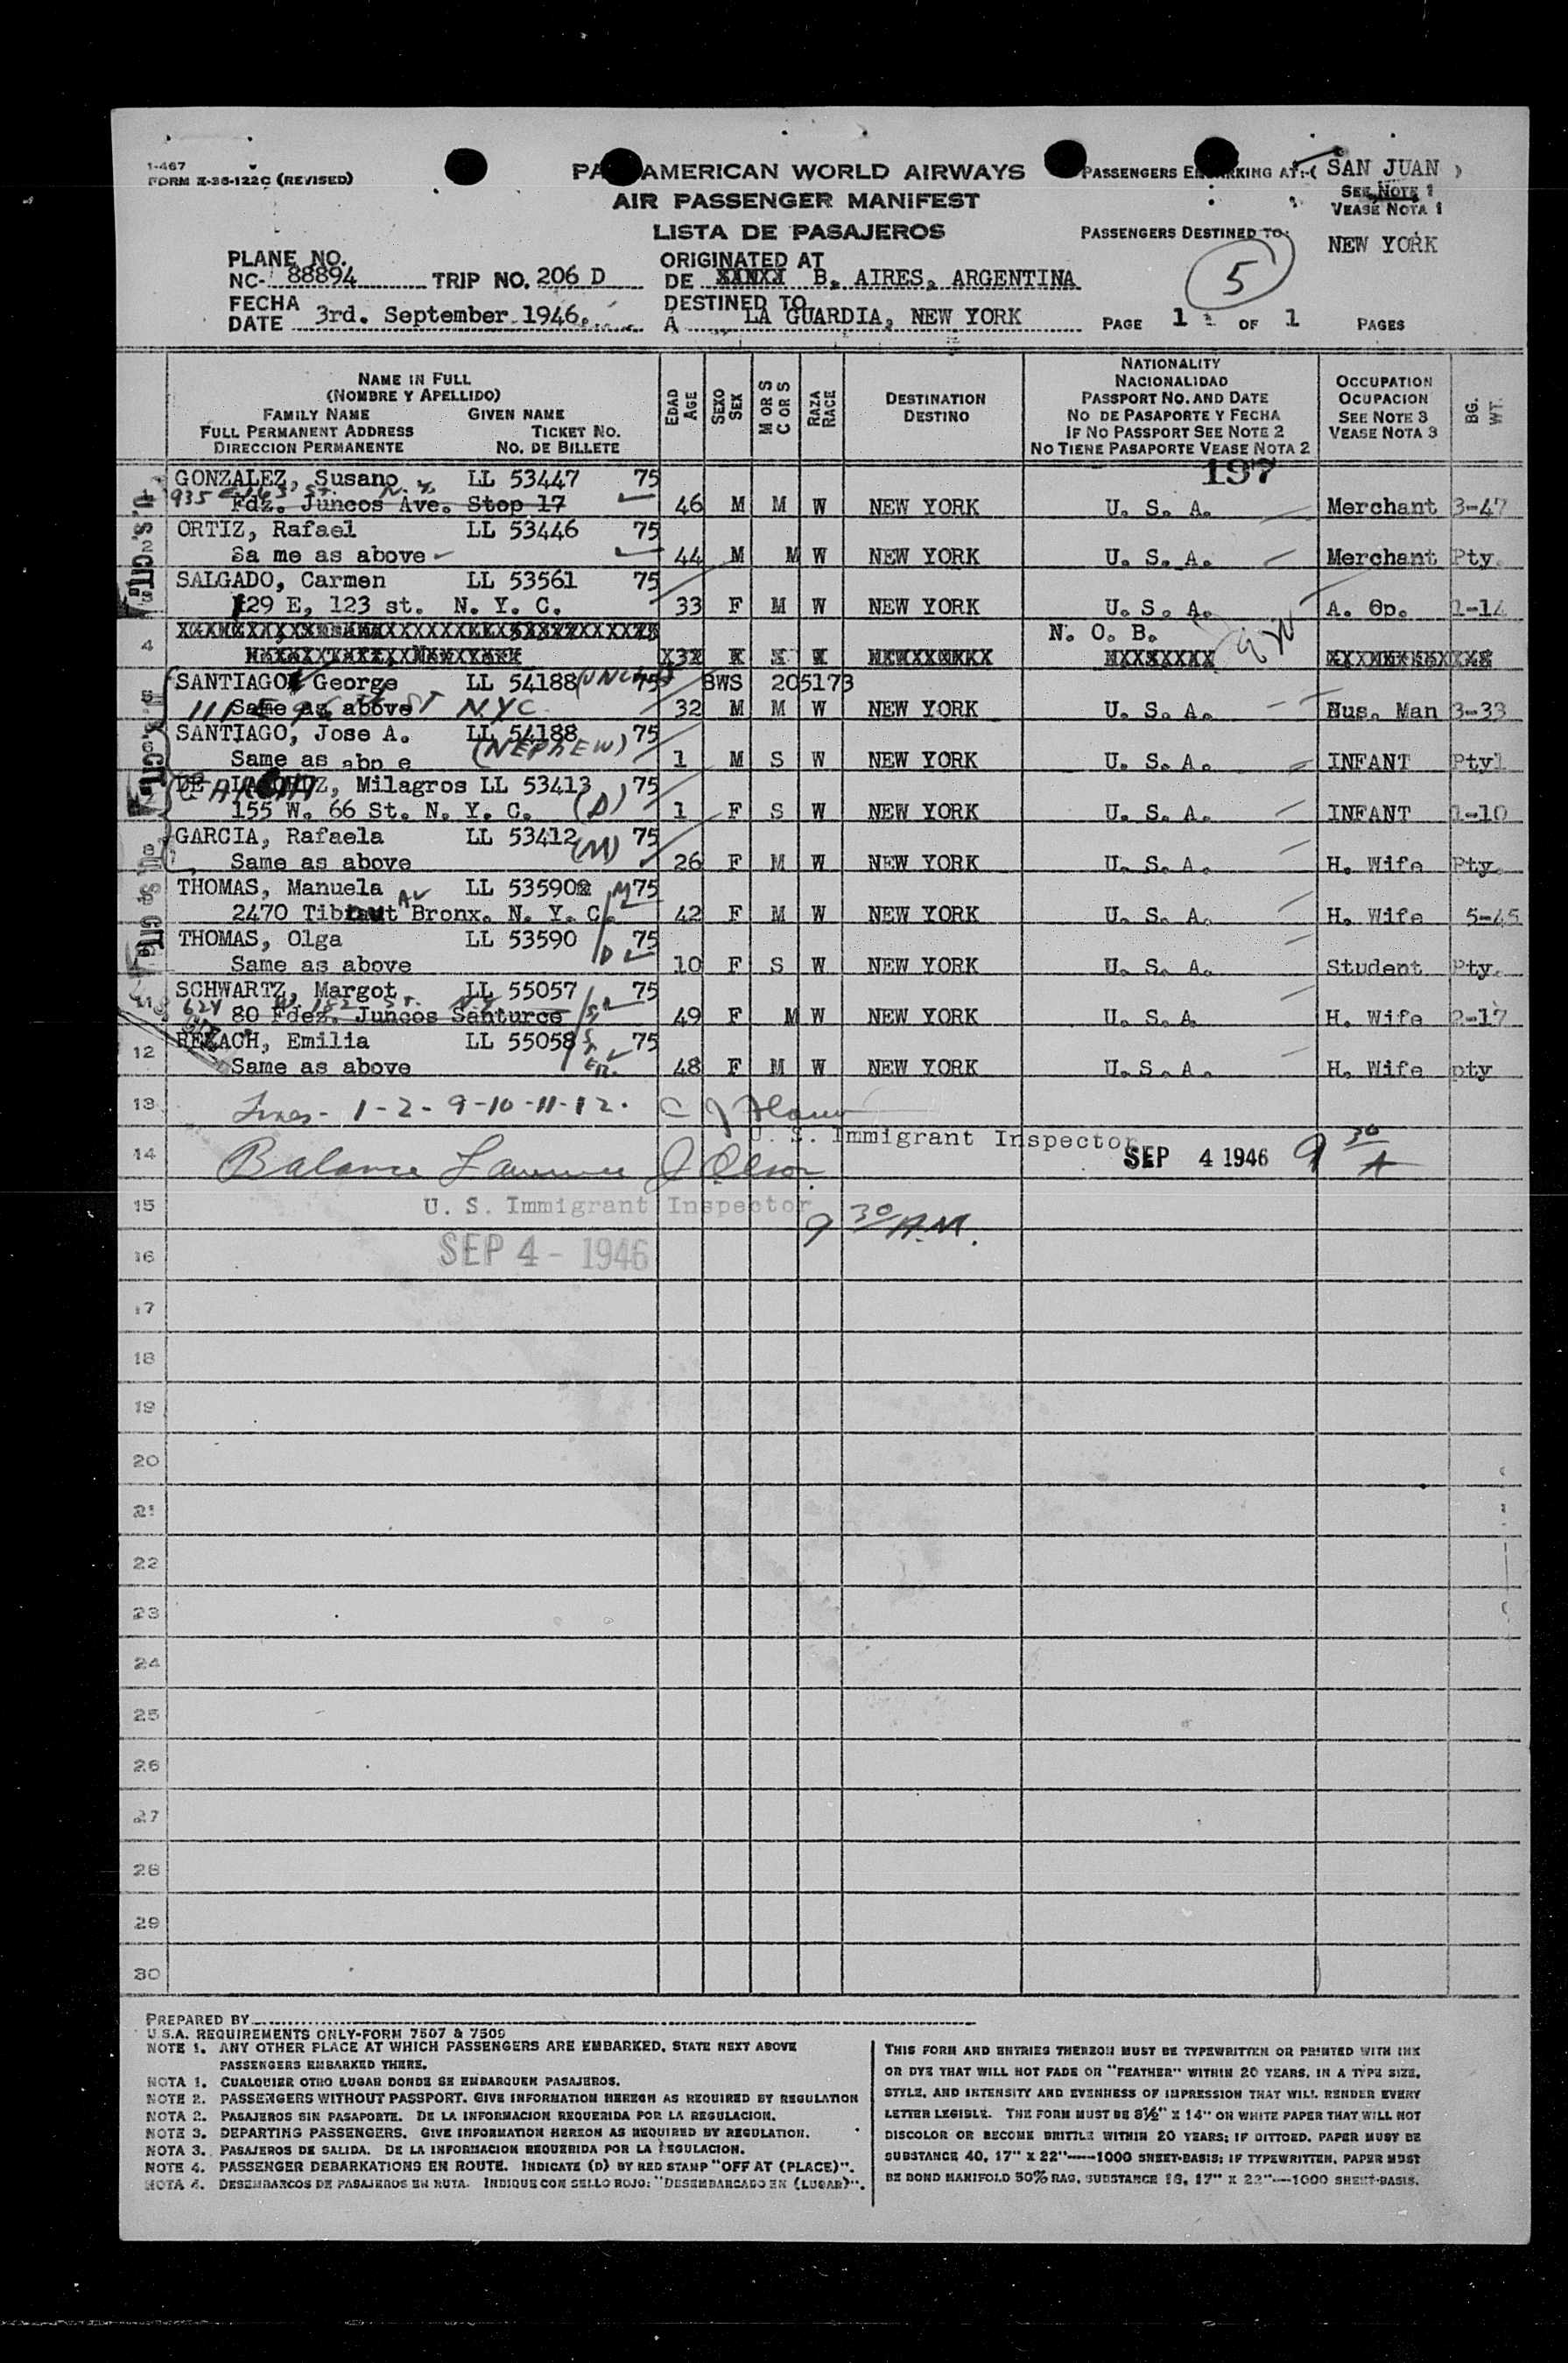 1-467
FORM X-36-122C (REVISED)
PAN AMERICAN WORLD AIRWAYS
AIR PASSENGER MANIFEST
LISTA DE PASAJEROS
PASSENGERS EMBARKING AT:-( SAN JUAN )
SEE NOTE 1
VEASE NOTA 1
PASSENGERS DESTINED TO: NEW YORK
5
PLANE NO.
NC- 88894 TRIP NO. 206 D
ORIGINATED AT
DE B. AIRES, ARGENTINA
FECHA
DATE 3rd. September 1946.
DESTINED TO
A LA GUARDIA, NEW YORK
PAGE 1 OF 1 PAGES
NAME IN FULL
(NOMBRE Y APELLIDO)
FAMILY NAME GIVEN NAME
FULL PERMANENT ADDRESS TICKET NO.
DIRECCION PERMANENTE NO. DE BILLETE
EDAD AGE
SEXO SEX
M OR S C OR S
RAZA RACE
DESTINATION
DESTINO
NATIONALITY
NACIONALIDAD
PASSPORT NO. AND DATE
NO DE PASAPORTE Y FECHA
IF NO PASSPORT SEE NOTE 2
NO TIENE PASAPORTE VEASE NOTA 2
OCCUPATION
OCUPACION
SEE NOTE 3
VEASE NOTA 3
BG. WT.
197
GONZALEZ, Susano LL 53447 75
935 E 163 St. N.Y.
Fdz. Juncos Ave. Stop 17 46 M M W NEW YORK U. S. A. Merchant 3-47
ORTIZ, Rafael LL 53446 75
Sa me as above 44 M M W NEW YORK U. S. A. Merchant Pty.
SALGADO, Carmen LL 53561 75
129 E, 123 st. N. Y. C. 33 F M W NEW YORK U. S. A. A. Op. 1-14
4 N. O. B.
SANTIAGO, George LL 54188 (UNCLE) 75 BWS 205173
Same as above 32 M M W NEW YORK U. S. A. Bus. Man 3-33
111 E 96 ST NYC
SANTIAGO, Jose A. LL 54188 75
(NEPHEW)
Same as abo e 1 M S W NEW YORK U. S. A. INFANT Pty1
DE LA CRUZ, Milagros LL 53413 75
155 W. 66 St. N. Y. C. (D) 1 F S W NEW YORK U. S. A. INFANT 1-10
GARCIA, Rafaela LL 53412 (M) 75
Same as above 26 F M W NEW YORK U. S. A. H. Wife Pty.
THOMAS, Manuela LL 53590 M 75
2470 Tibout Av Bronx. N. Y. C. 42 F M W NEW YORK U. S. A. H. Wife 5-45
THOMAS, Olga LL 53590 75
Same as above D 10 F S W NEW YORK U. S. A. Student Pty.
SCHWARTZ, Margot LL 55057 75
624 W. 152 St. N.Y.
11 80 Fdez. Juncos Santurce 49 F M W NEW YORK U. S. A H. Wife 2-17
REXACH, Emilia LL 55058 75
12 Same as above 48 F M W NEW YORK U. S. A. H. Wife pty
U.S. CIT.
U.S. CIT.
U.S. CIT.
13 Lines - 1-2-9-10-11-12.
U. S. Immigrant Inspector
14 SEP 4 1946 9 30/A
Balance
15 U. S. Immigrant Inspector
9 30/A.M.
16 SEP 4 - 1946
17
18
19
20
21
22
23
24
25
26
27
28
29
30
PREPARED BY
U.S.A. REQUIREMENTS ONLY-FORM 7507 & 7509
NOTE 1. ANY OTHER PLACE AT WHICH PASSENGERS ARE EMBARKED, STATE NEXT ABOVE
PASSENGERS EMBARKED THERE.
NOTA 1. CUALQUIER OTRO LUGAR DONDE SE EMBARQUEN PASAJEROS.
NOTE 2. PASSENGERS WITHOUT PASSPORT. GIVE INFORMATION HEREON AS REQUIRED BY REGULATION
NOTA 2. PASAJEROS SIN PASAPORTE. DE LA INFORMACION REQUERIDA POR LA REGULACION.
NOTE 3. DEPARTING PASSENGERS. GIVE INFORMATION HEREON AS REQUIRED BY REGULATION.
NOTA 3. PASAJEROS DE SALIDA. DE LA INFORMACION REQUERIDA POR LA REGULACION.
NOTE 4. PASSENGER DEBARKATIONS EN ROUTE. INDICATE (D) BY RED STAMP "OFF AT (PLACE)".
NOTA 4. DESEMBARCOS DE PASAJEROS EN RUTA. INDIQUE CON SELLO ROJO: "DESEMBARCADO EN (LUGAR)".
THIS FORM AND ENTRIES THEREON MUST BE TYPEWRITTEN OR PRINTED WITH INK
OR DYE THAT WILL NOT FADE OR "FEATHER" WITHIN 20 YEARS, IN A TYPE SIZE,
STYLE, AND INTENSITY AND EVENNESS OF IMPRESSION THAT WILL RENDER EVERY
LETTER LEGIBLE. THE FORM MUST BE 8½" X 14" ON WHITE PAPER THAT WILL NOT
DISCOLOR OR BECOME BRITTLE WITHIN 20 YEARS; IF DITTOED, PAPER MUST BE
SUBSTANCE 40, 17" X 22"-----1000 SHEET-BASIS; IF TYPEWRITTEN, PAPER MUST
BE BOND MANIFOLD 50% RAG, SUBSTANCE 16, 17" X 22"---1000 SHEET-BASIS.